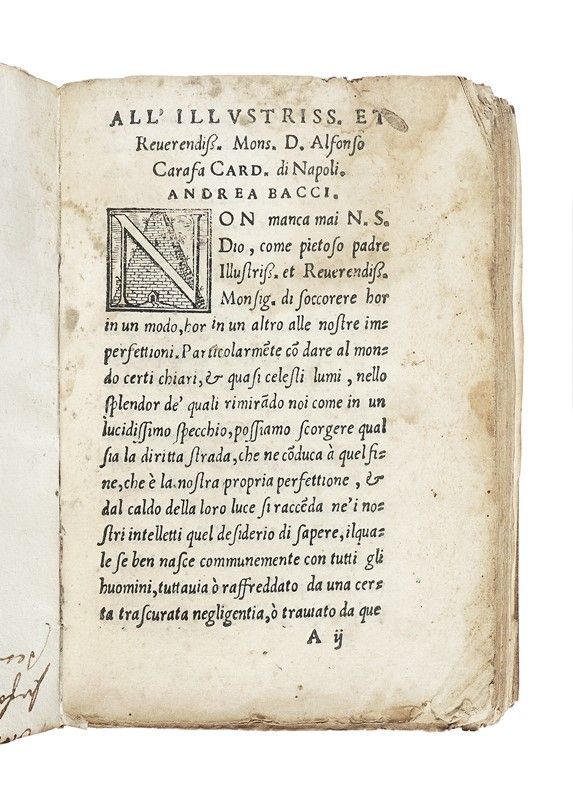 ALL' ILLVSTRISS. ET
Reuerendiſſ. Mons. D. Alfonſo
Carafa CARD. di Napoli.
ANDREA BACCI.
NON manca mai N. S.
DIO, come pietoſo padre
Illuſtriſſ. et Reuerendiſſ.
Monſig. di ſoccorere hor
in un modo, hor in un altro alle noſtre im=
perfettioni. Particolarmēte cō dare al mon=
do certi chiari, & quaſi celeſti lumi, nello
ſplendor de' quali rimirādo noi come in un
lucidiſſimo ſpecchio, poſſiamo ſcorgere qual
ſia la diritta ſtrada, che ne cōduca à quel fi=
ne, che è la noſtra propria perfettione, &
dal caldo della loro luce ſi raccēda ne' i no=
ſtri intelletti quel deſiderio di ſapere, ilqua=
le ſe ben naſce communemente con tutti gli
huomini, tuttauia ò raffreddato da una cer=
ta traſcurata negligentia, ò trauiato da que
A ij